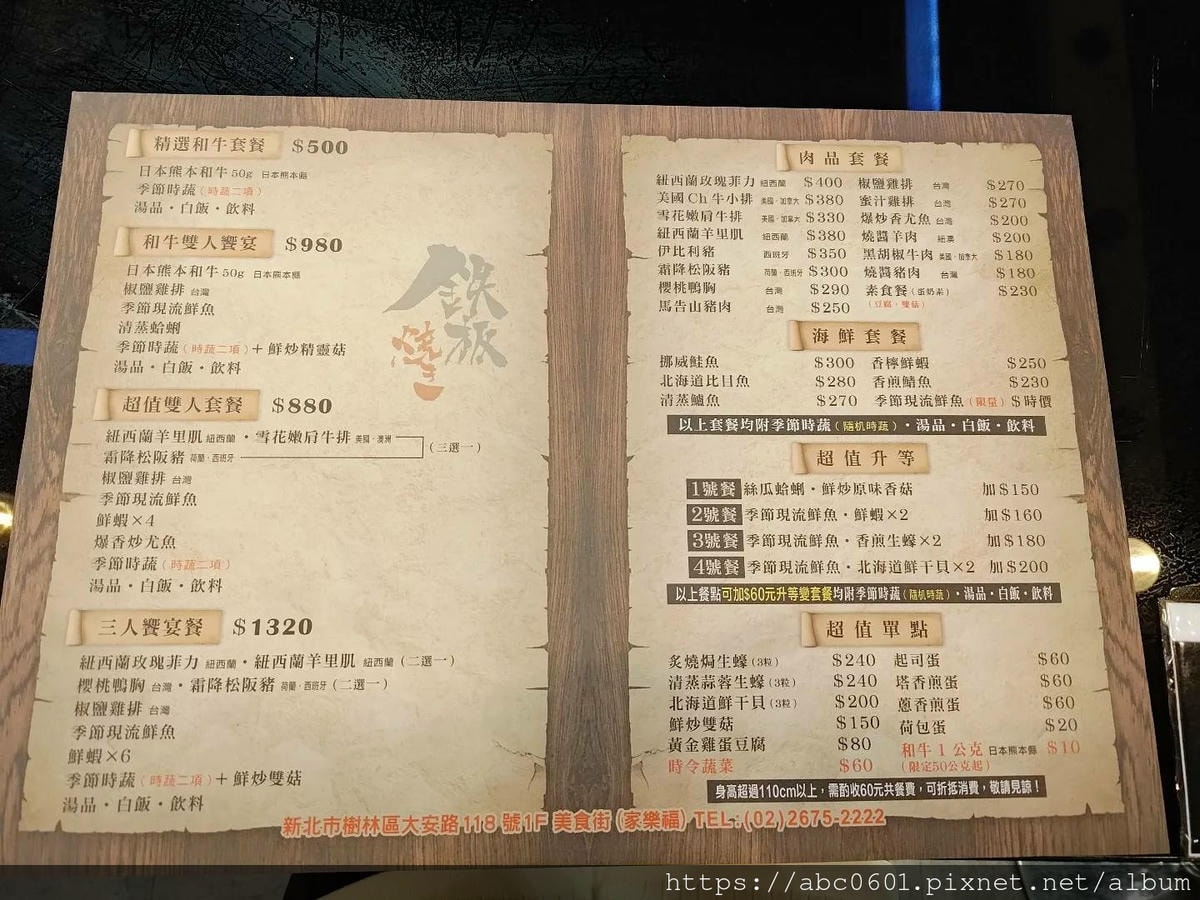 精選和牛套餐 $500
日本熊本和牛50g 日本熊本縣
季節時蔬(時蔬二項)
湯品・白飯・飲料
和牛雙人饗宴 $980
日本熊本和牛50g 日本熊本縣
椒鹽雞排 台灣
季節現流鮮魚
清蒸蛤蜊
季節時蔬(時蔬二項)+鮮炒精靈菇
湯品・白飯・飲料
鉄板燒き
超值雙人套餐 $880
紐西蘭羊里肌 紐西蘭・雪花嫩肩牛排 美國・澳洲
霜降松阪豬 荷蘭・西班牙 (三選一)
椒鹽雞排 台灣
季節現流鮮魚
鮮蝦×4
爆香炒尤魚
季節時蔬(時蔬二項)
湯品・白飯・飲料
三人饗宴餐 $1320
紐西蘭玫瑰菲力 紐西蘭・紐西蘭羊里肌 紐西蘭(二選一)
櫻桃鴨胸 台灣・霜降松阪豬 荷蘭・西班牙(二選一)
椒鹽雞排 台灣
季節現流鮮魚
鮮蝦×6
季節時蔬(時蔬二項)+鮮炒雙菇
湯品・白飯・飲料
肉品套餐
紐西蘭玫瑰菲力 紐西蘭 $400 椒鹽雞排 台灣 $270
美國Ch牛小排 美國・加拿大 $380 蜜汁雞排 台灣 $270
雪花嫩肩牛排 美國・加拿大 $330 爆炒香尤魚 台灣 $200
紐西蘭羊里肌 紐西蘭 $380 燒醬羊肉 紐澳 $200
伊比利豬 西班牙 $350 黑胡椒牛肉 美國・加大 $180
霜降松阪豬 荷蘭・西班牙 $300 燒醬豬肉 台灣 $180
櫻桃鴨胸 台灣 $290 素食餐(蛋奶素) $230
馬告山豬肉 台灣 $250 (豆腐・雙菇)
海鮮套餐
挪威鮭魚 $300 香檸鮮蝦 $250
北海道比目魚 $280 香煎鯖魚 $230
清蒸鱸魚 $270 季節現流鮮魚(限量) $時價
以上套餐均附季節時蔬(隨机時蔬)・湯品・白飯・飲料
超值升等
1號餐 絲瓜蛤蜊・鮮炒原味香菇 加$150
2號餐 季節現流鮮魚・鮮蝦×2 加$160
3號餐 季節現流鮮魚・香煎生蠔×2 加$180
4號餐 季節現流鮮魚・北海道鮮干貝×2 加$200
以上餐點可加$60元升等變套餐均附季節時蔬(隨机時蔬)・湯品・白飯・飲料
超值單點
炙燒焗生蠔(3粒) $240 起司蛋 $60
清蒸蒜蓉生蠔(3粒) $240 塔香煎蛋 $60
北海道鮮干貝(3粒) $200 蔥香煎蛋 $60
鮮炒雙菇 $150 荷包蛋 $20
黃金雞蛋豆腐 $80 和牛1公克 日本熊本縣 $10
時令蔬菜 $60 (限定50公克起)
身高超過110cm以上,需酌收60元共餐費,可折抵消費,敬請見諒!
新北市樹林區大安路118號1F 美食街(家樂福) TEL:(02)2675-2222
https://abc0601.pixnet.net/album